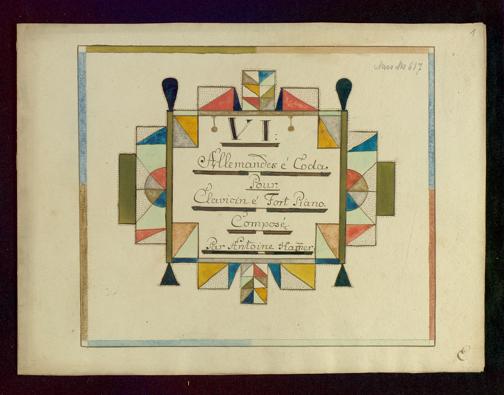 1
Mus. Ms. 617
VI:
Allemandes é Coda
Pour
Clavicin é Fort Piano
Composé
Par Antoine